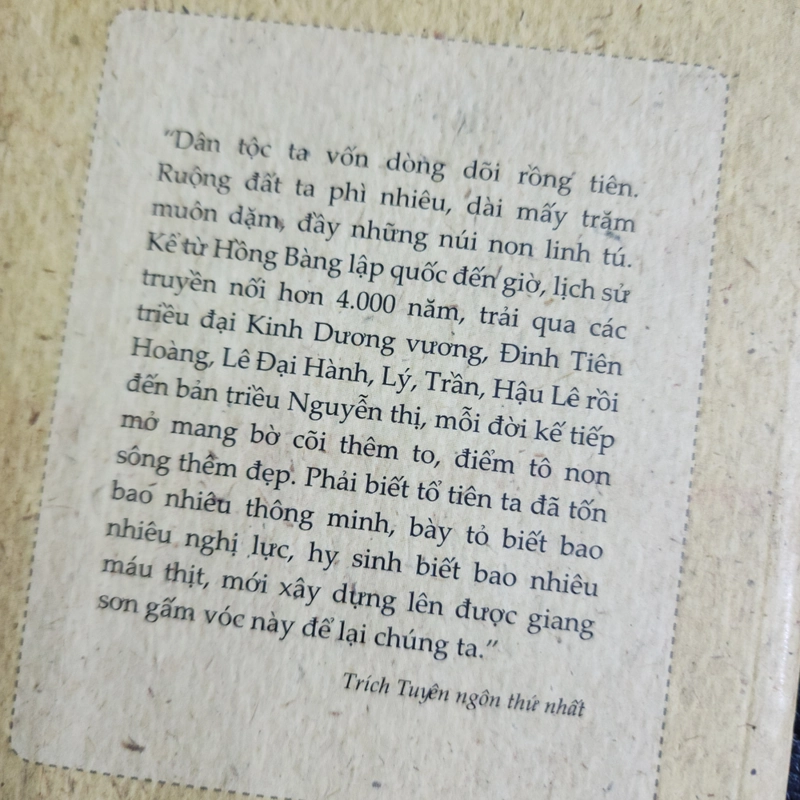 "Dân tộc ta vốn dòng dõi rồng tiên.
Ruộng đất ta phì nhiêu, dài mấy trăm
muôn dặm, đầy những núi non linh tú.
Kể từ Hồng Bàng lập quốc đến giờ, lịch sử
truyền nối hơn 4.000 năm, trải qua các
triều đại Kinh Dương vương, Đinh Tiên
Hoàng, Lê Đại Hành, Lý, Trần, Hậu Lê rồi
đến bản triều Nguyễn thị, mỗi đời kế tiếp
mở mang bờ cõi thêm to, điểm tô non
sông thêm đẹp. Phải biết tổ tiên ta đã tốn
bao nhiêu thông minh, bày tỏ biết bao
nhiêu nghị lực, hy sinh biết bao nhiêu
máu thịt, mới xây dựng lên được giang
sơn gấm vóc này để lại chúng ta."
Trích Tuyên ngôn thứ nhất